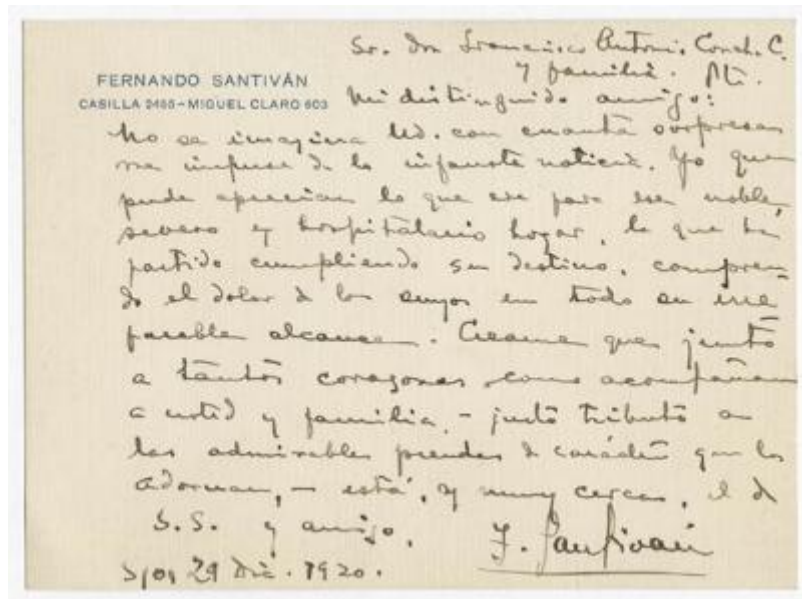 FERNANDO SANTIVÁN
CASILLA 2466 - MIGUEL CLARO 603
Sr. don Francisco Antonio Conch. C.
y familia. Pte.
Mi distinguido amigo:
No se imagina Ud. con cuanta sorpresa
me impuse de la infausta noticia. Yo que
pude apreciar lo que era para ese noble,
severo y hospitalario hogar, la que ha
partido cumpliendo su destino, compren-
do el dolor de los suyos en todo su irre
parable alcance. Créame que junto
a tantos corazones como acompañan
a usted y familia, - justo tributo a
las admirables prendas de carácter que los
adornan, - está, y muy cerca, el de
S.S. y amigo,
F. Santiván
29 Dic. 1920.